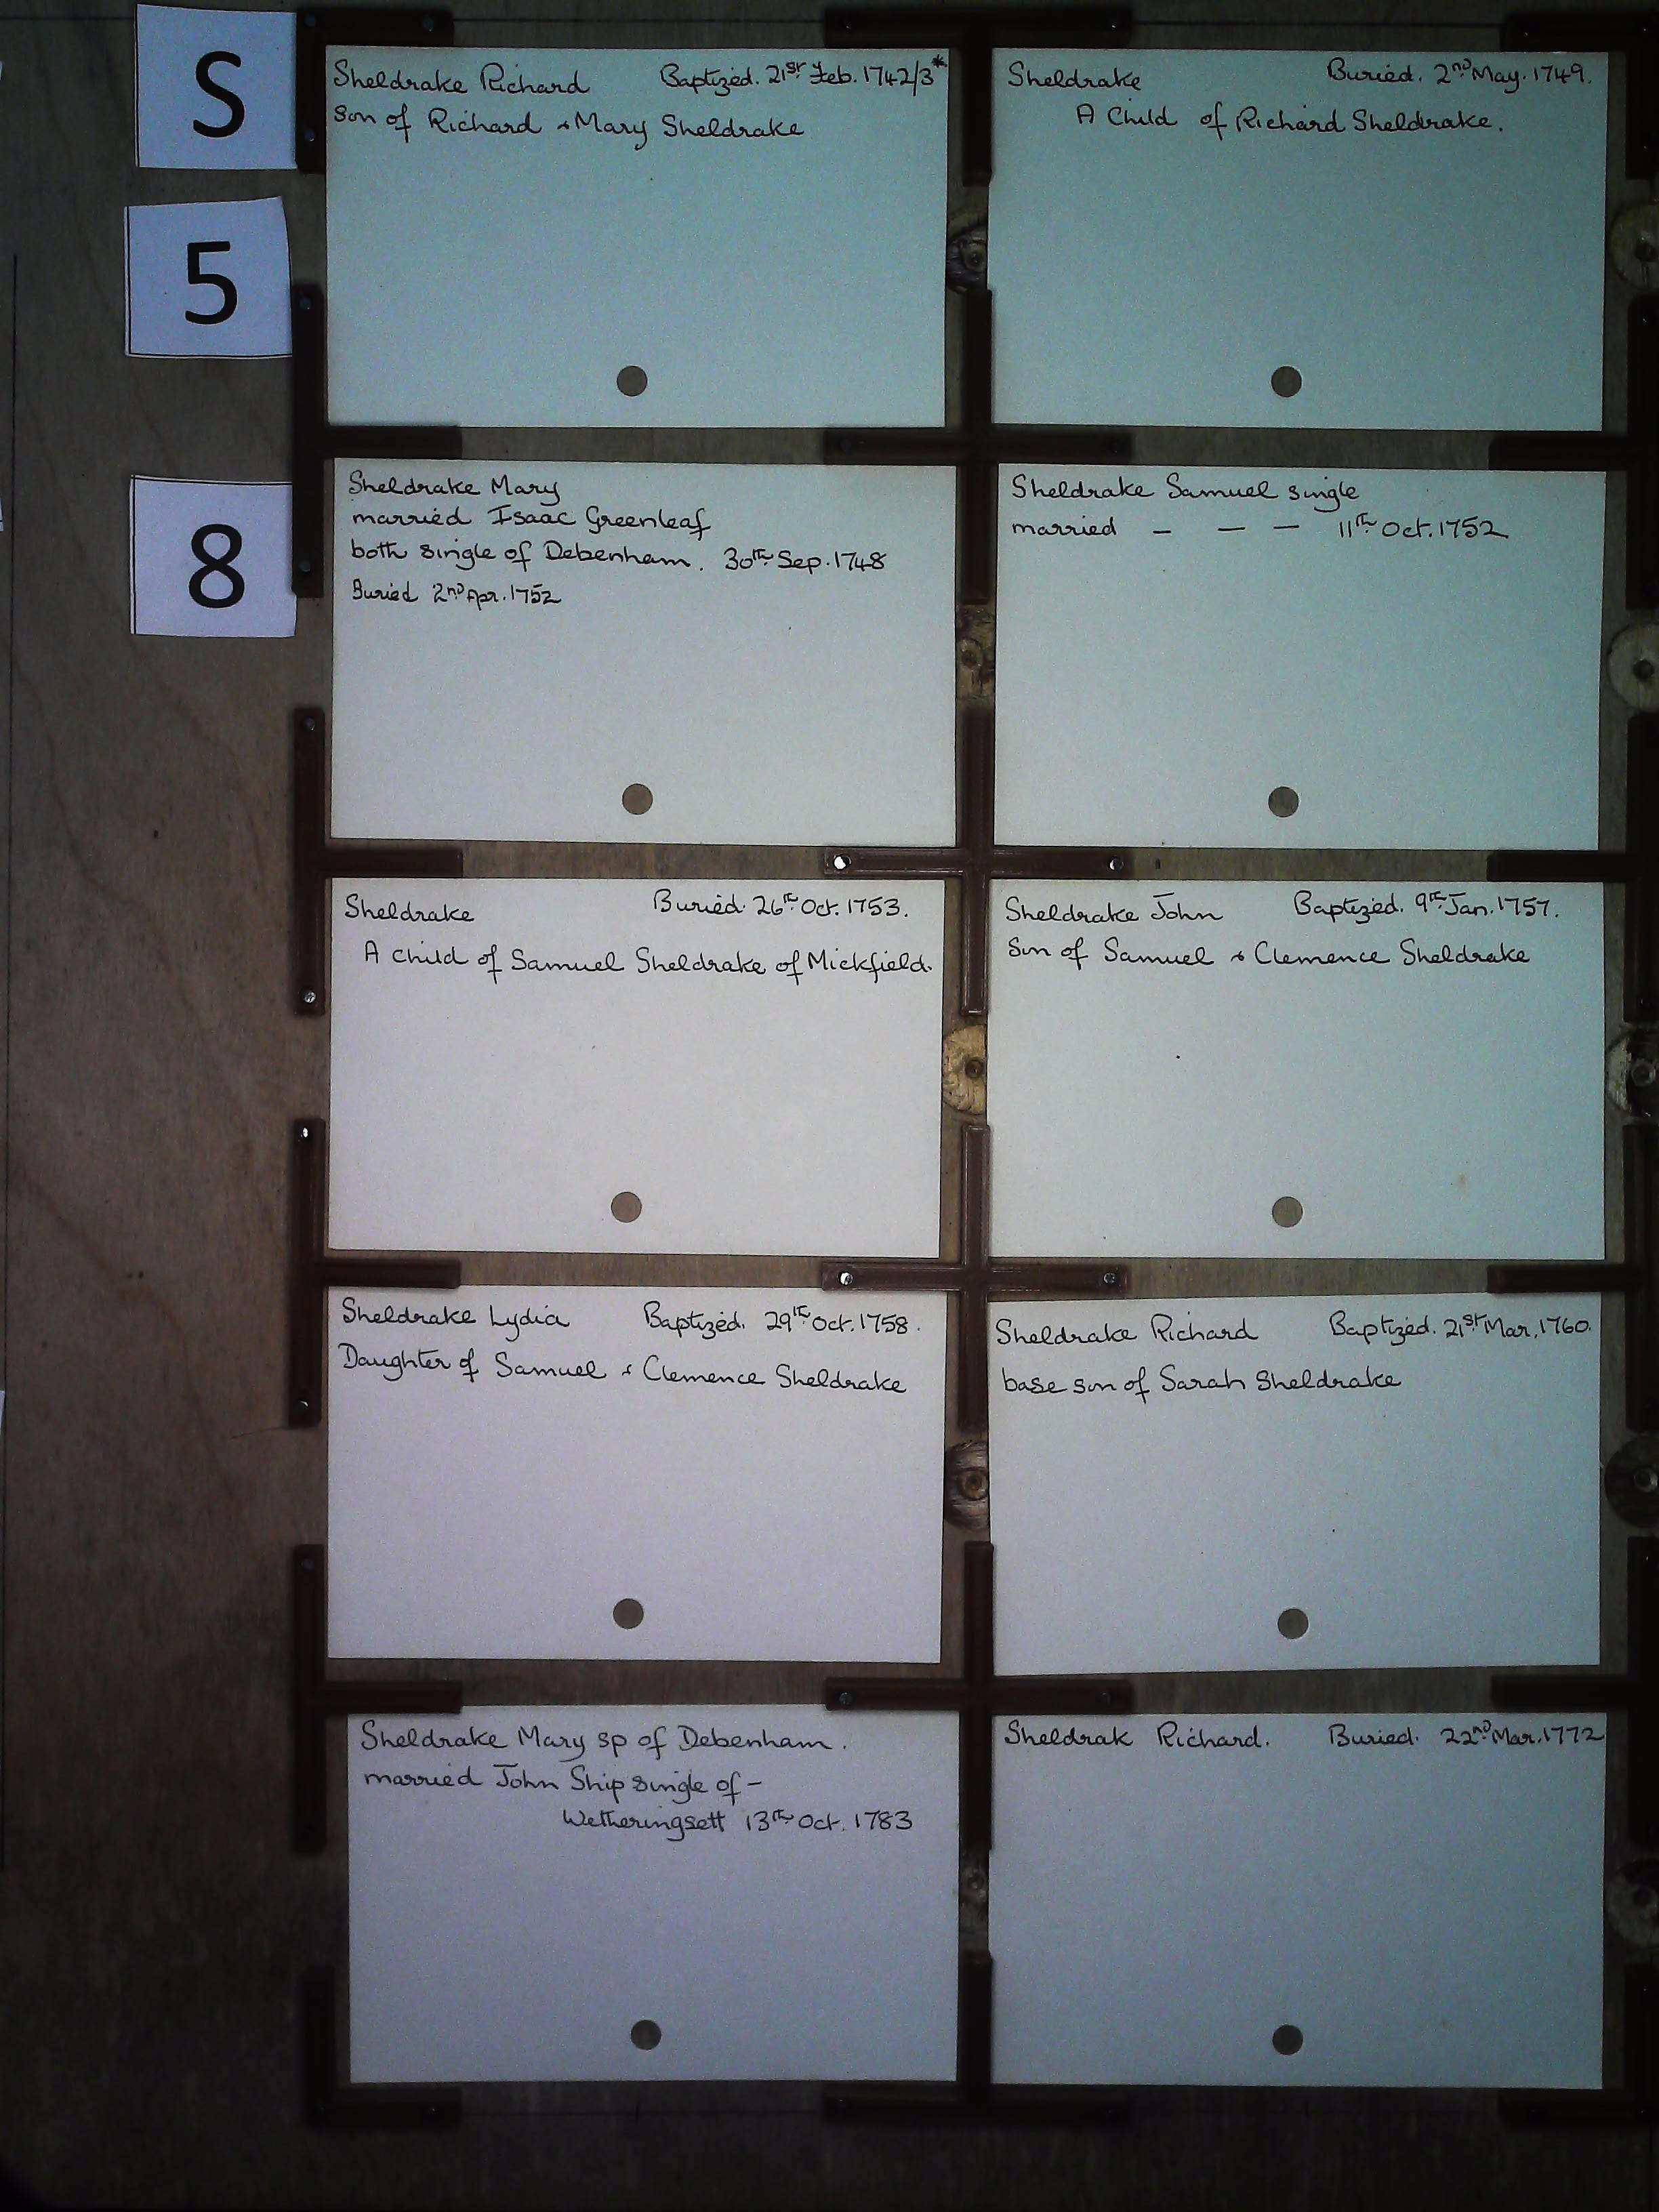 S
5
8
Sheldrake Richard Baptized. 21st Feb. 1742/3*
Son of Richard & Mary Sheldrake
Sheldrake Buried. 2nd May. 1749.
A Child of Richard Sheldrake.
Sheldrake Mary
married Isaac Greenleaf
both single of Debenham. 30th Sep. 1748
Buried 2nd Apr. 1752
Sheldrake Samuel single
married - - - 11th Oct. 1752
Sheldrake Buried. 26th Oct. 1753.
A Child of Samuel Sheldrake of Mickfield.
Sheldrake John Baptized. 9th Jan. 1757.
Son of Samuel & Clemence Sheldrake
Sheldrake Lydia Baptized. 29th Oct. 1758.
Daughter of Samuel & Clemence Sheldrake
Sheldrake Richard Baptized. 21st Mar. 1760.
base son of Sarah Sheldrake
Sheldrake Mary sp of Debenham.
married John Ship single of -
Wetheringsett 13th Oct. 1783
Sheldrak Richard. Buried. 22nd Mar. 1772